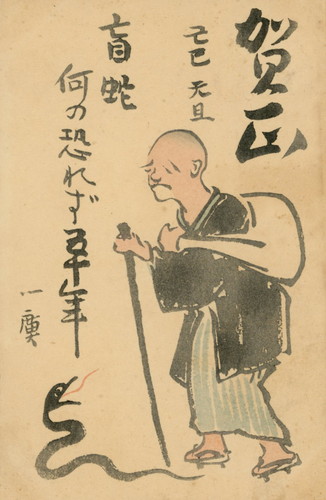 賀正
己巳 元旦
盲蛇
何の恐れず五十年